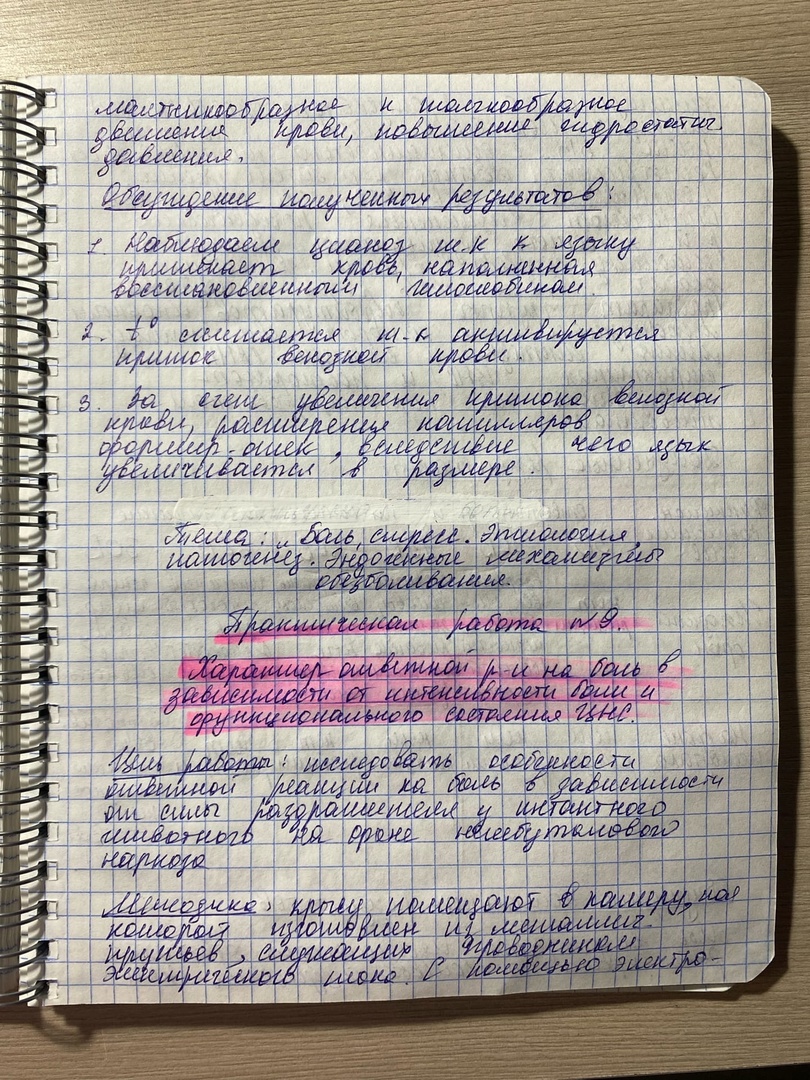 маятникообразное и толчкообразное
движение крови, повышение гидростатич.
давления.
Обсуждение полученных результатов:
1. Наблюдаем цианоз т.к к языку
приливает кровь, наполненная
восстановленным гемоглобином
2. t° снижается т-к активируется
приток венозной крови.
3. За счет увеличения притока венозной
крови, расширения капилляров
формир. отек, вследствие чего язык
увеличивается в размере.
Тема: „Боль, стресс. Этиология,
патогенез. Эндогенные механизмы
обезболивания.
Практическая работа №9.
Характер ответной р-и на боль в
зависимости от интенсивности боли и
функционального состояния ЦНС.
Цель работы: исследовать особенности
ответной реакции на боль в зависимости
от силы раздражителя у интактного
животного на фоне нембуталового
наркоза
Методика: крысу помещают в камеру, пол
которой изготовлен из металлич.
прутьев, служащих проводником
электрического тока. С помощью электро-